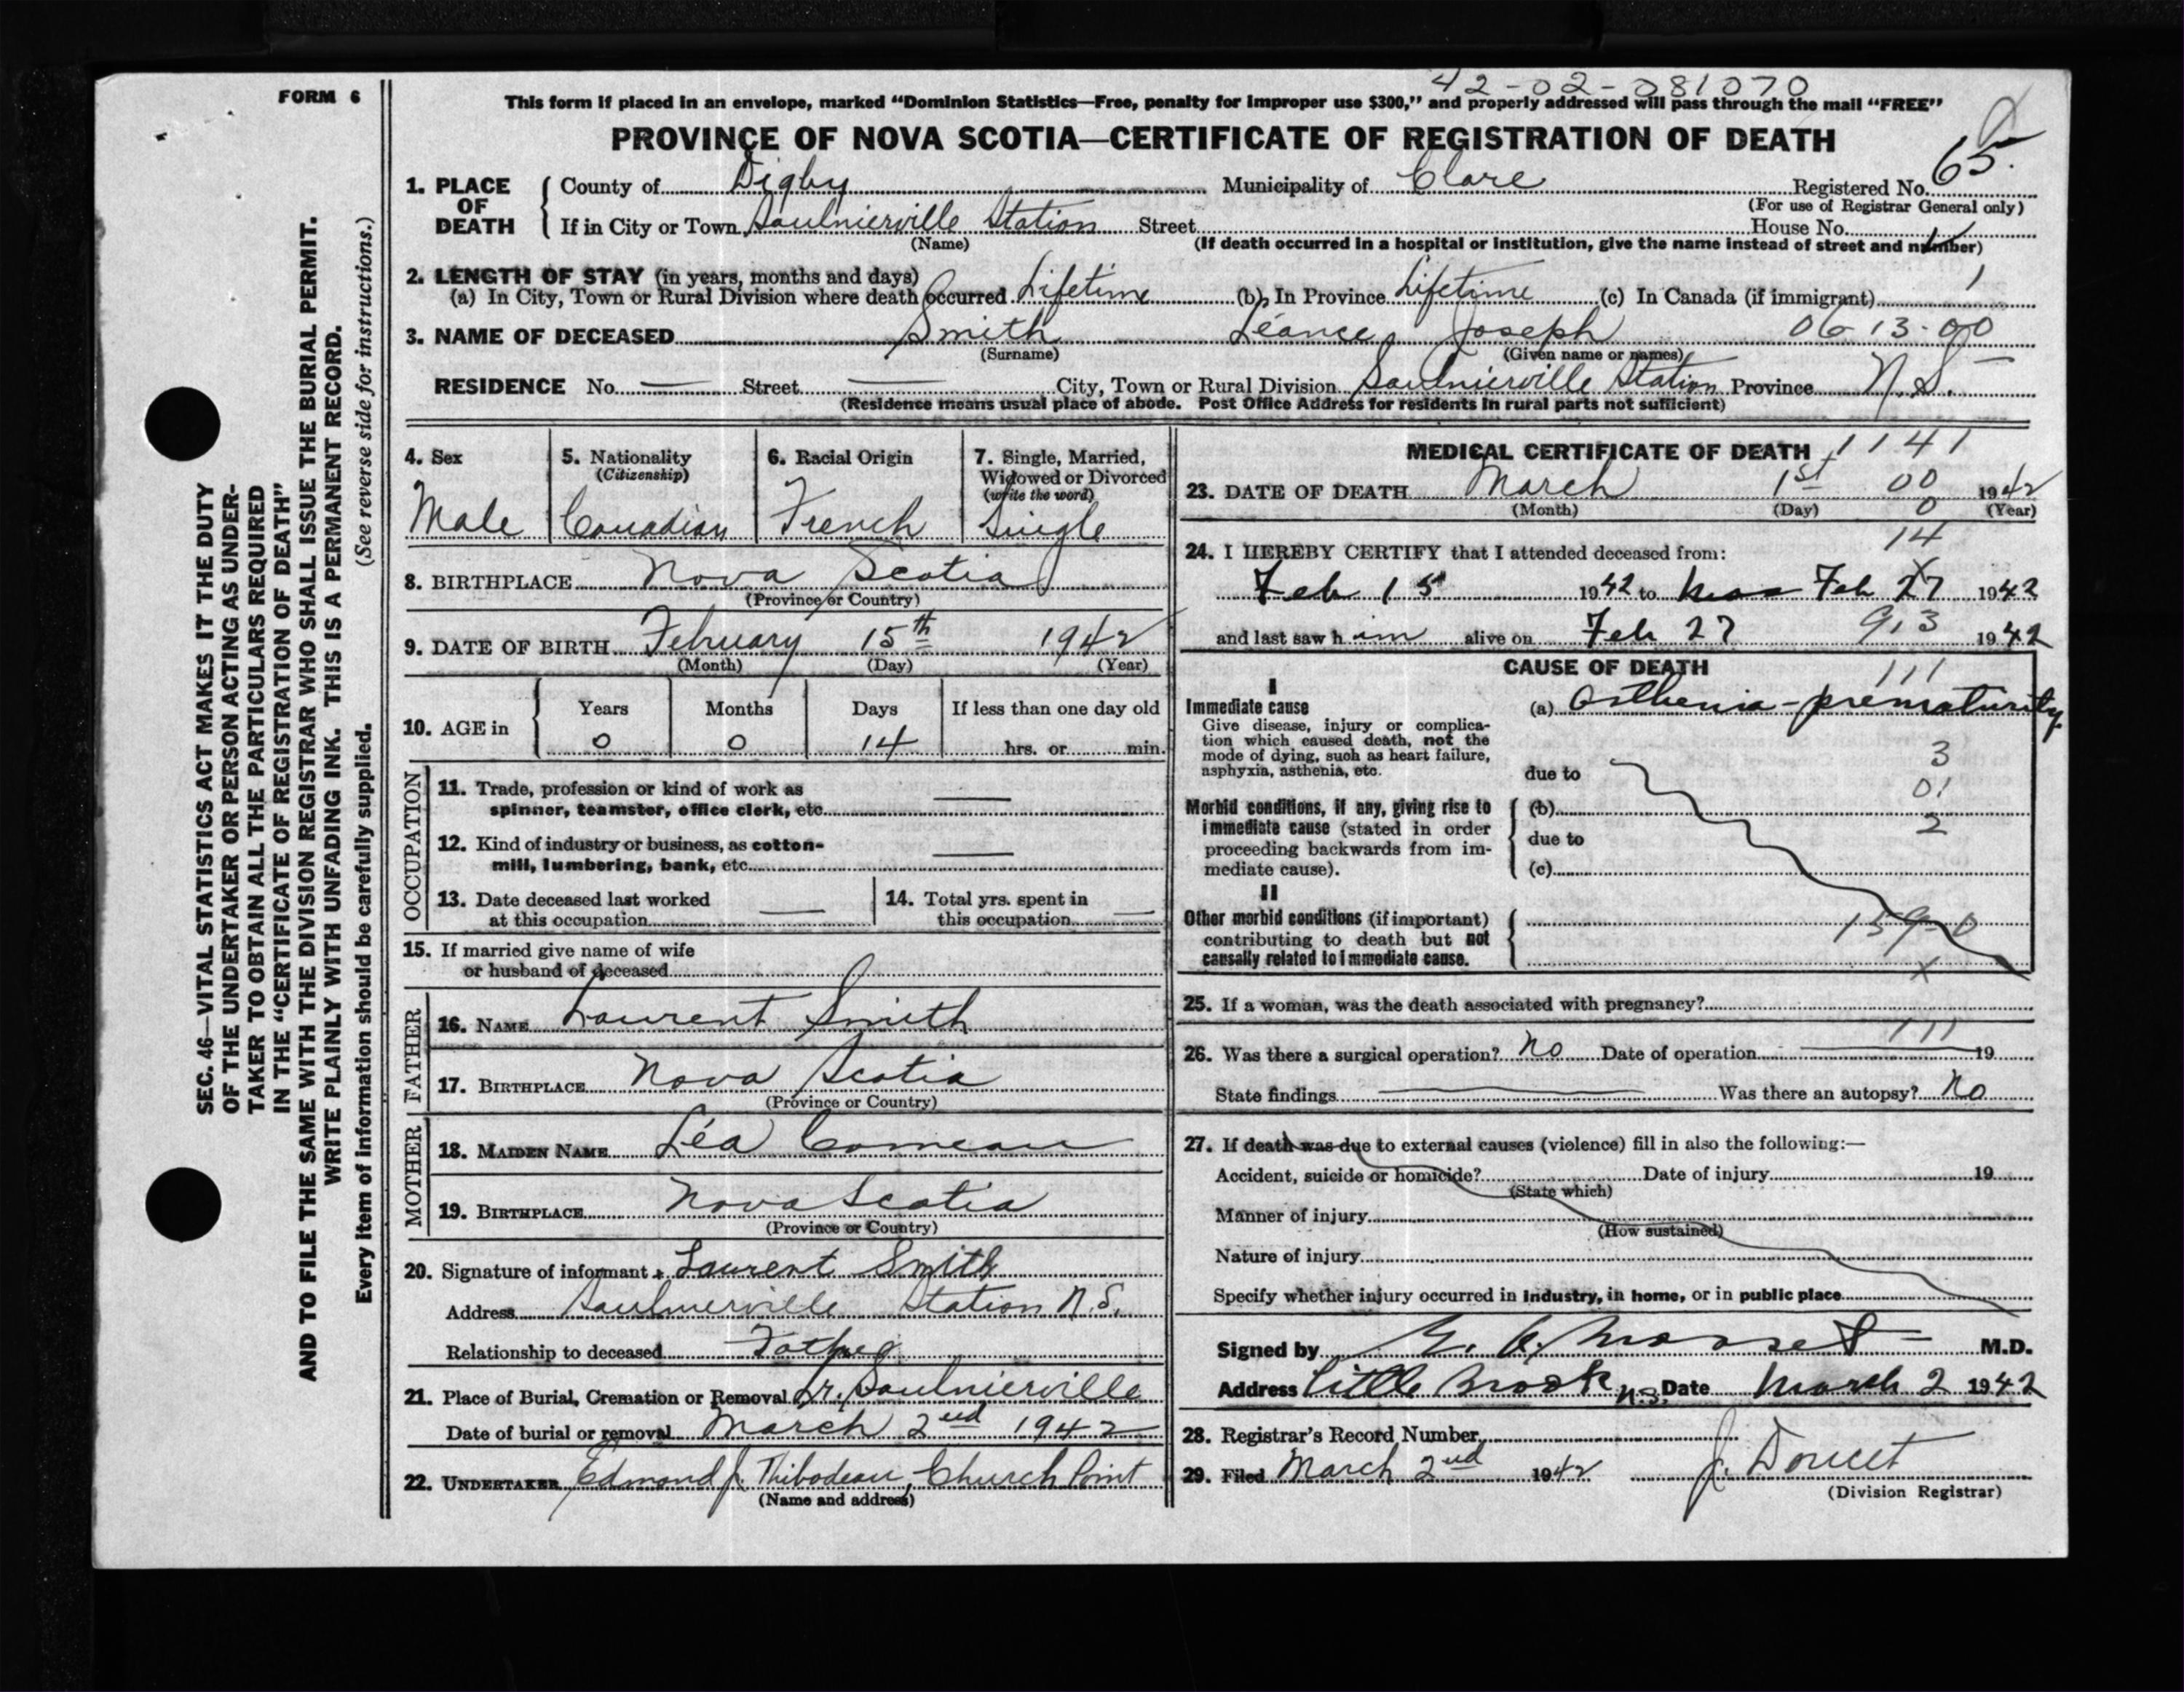 42-02-081070
FORM 6
This form if placed in an envelope, marked “Dominion Statistics—Free, penalty for improper use $300,” and properly addressed will pass through the mail “FREE”
PROVINCE OF NOVA SCOTIA—CERTIFICATE OF REGISTRATION OF DEATH
1. PLACE OF DEATH County of Digby Municipality of Clare Registered No. 65.
(For use of Registrar General only)
If in City or Town Saulnierville Station Street House No.
(Name) (If death occurred in a hospital or institution, give the name instead of street and number)
2. LENGTH OF STAY (in years, months and days)
(a) In City, Town or Rural Division where death occurred Lifetime (b) In Province Lifetime (c) In Canada (if immigrant) 1
3. NAME OF DECEASED Smith Léance Joseph 06-13-00
(Surname) (Given name or names)
RESIDENCE No. — Street — City, Town or Rural Division Saulnierville Station Province N.S.
(Residence means usual place of abode. Post Office Address for residents in rural parts not sufficient)
4. Sex
Male
5. Nationality
(Citizenship)
Canadian
6. Racial Origin
French
7. Single, Married,
Widowed or Divorced
(write the word)
Single
8. BIRTHPLACE Nova Scotia
(Province or Country)
9. DATE OF BIRTH February 15th 1942
(Month) (Day) (Year)
10. AGE in
Years Months Days If less than one day old
0 0 14 hrs. or min.
OCCUPATION
11. Trade, profession or kind of work as
spinner, teamster, office clerk, etc. —
12. Kind of industry or business, as cotton-
mill, lumbering, bank, etc. —
13. Date deceased last worked
at this occupation —
14. Total yrs. spent in
this occupation —
15. If married give name of wife
or husband of deceased
FATHER
16. NAME Laurent Smith
17. BIRTHPLACE Nova Scotia
(Province or Country)
MOTHER
18. MAIDEN NAME Léa Comeau
19. BIRTHPLACE Nova Scotia
(Province or Country)
20. Signature of informant Laurent Smith
Address Saulnierville Station N.S.
Relationship to deceased Father
21. Place of Burial, Cremation or Removal Lr. Saulnierville
Date of burial or removal March 2nd 1942
22. UNDERTAKER Edmond J. Thibodeau, Church Point
(Name and address)
MEDICAL CERTIFICATE OF DEATH 1141
23. DATE OF DEATH March 1st 00 1942
(Month) (Day) 0 (Year)
14
24. I HEREBY CERTIFY that I attended deceased from:
Feb 15 1942 to Feb 27 1942
and last saw him alive on Feb 27 913 1942
CAUSE OF DEATH
111
I
Immediate cause
Give disease, injury or complica-
tion which caused death, not the
mode of dying, such as heart failure,
asphyxia, asthenia, etc.
(a) Asthenia - prematurity
3
due to
01
Morbid conditions, if any, giving rise to
immediate cause (stated in order
proceeding backwards from im-
mediate cause).
(b)
2
due to
(c)
II
Other morbid conditions (if important)
contributing to death but not
causally related to immediate cause.
159-0
x
25. If a woman, was the death associated with pregnancy?
111
26. Was there a surgical operation? No Date of operation 19
State findings Was there an autopsy? No
27. If death was due to external causes (violence) fill in also the following:—
Accident, suicide or homicide? Date of injury 19
(State which)
Manner of injury
(How sustained)
Nature of injury
Specify whether injury occurred in industry, in home, or in public place
Signed by M.D.
Address Little Brook N.S. Date March 2 1942
28. Registrar's Record Number
29. Filed March 2nd 1942 J. Doucet
(Division Registrar)
SEC. 46—VITAL STATISTICS ACT MAKES IT THE DUTY
OF THE UNDERTAKER OR PERSON ACTING AS UNDER-
TAKER TO OBTAIN ALL THE PARTICULARS REQUIRED
IN THE “CERTIFICATE OF REGISTRATION OF DEATH”
AND TO FILE THE SAME WITH THE DIVISION REGISTRAR WHO SHALL ISSUE THE BURIAL PERMIT.
WRITE PLAINLY WITH UNFADING INK. THIS IS A PERMANENT RECORD.
Every item of information should be carefully supplied. (See reverse side for instructions.)